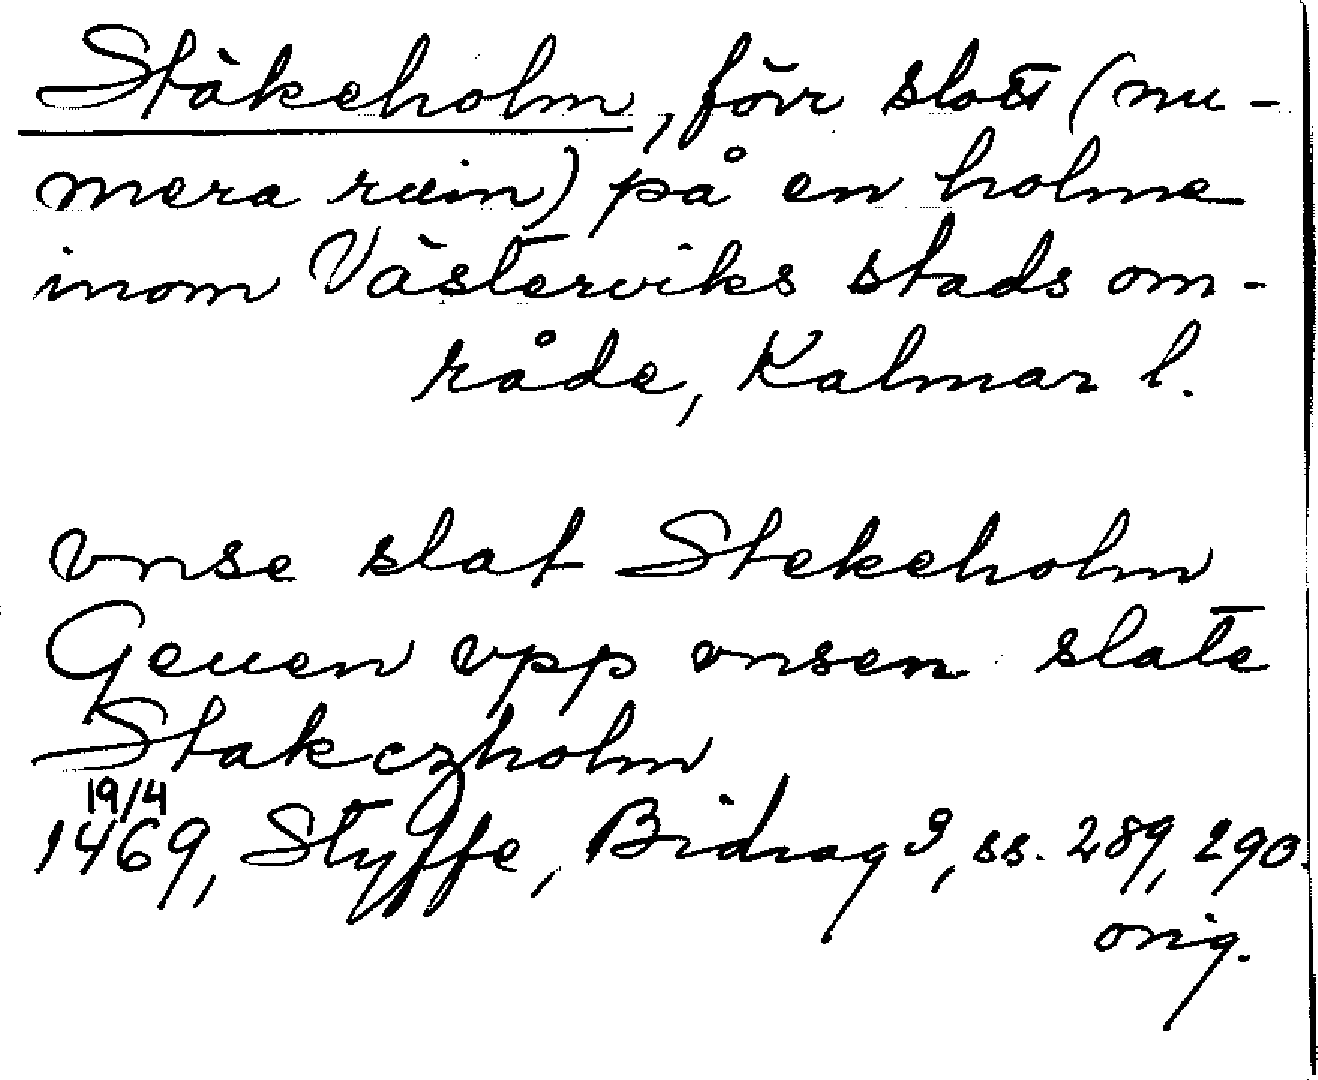 Stäkeholm, förr slott (nu-
mera ruin) på en holme
inom Västerviks stads om-
råde, Kalmar l.
vnse slat Stekeholm
Geuen vpp vnsen slate
Stakeczholm
19/4
1469, Styffe, Bidrag 9, ss. 289, 290.
orig.